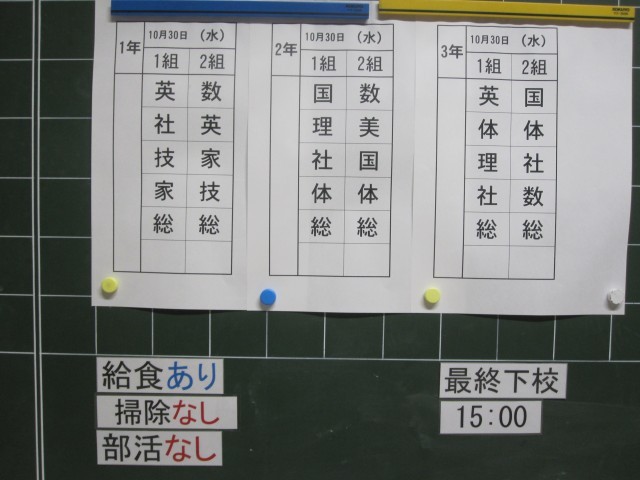 1年 10月30日 (水)
1組 2組
英 数
社 英
技 家
家 技
総 総
2年 10月30日 (水)
1組 2組
国 数
理 美
社 国
体 体
総 総
3年 10月30日 (水)
1組 2組
英 国
体 体
理 社
社 数
総 総
給食あり
掃除なし
部活なし
最終下校
15:00